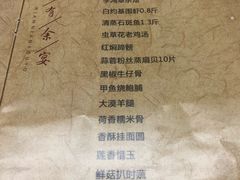 有余宴
白灼基围虾0.8斤
清蒸石斑鱼1.3斤
虫草花老鸡汤
红焖蹄髈
蒜蓉粉丝蒸扇贝10片
黑椒牛仔骨
甲鱼烧鲍脯
大漠羊腿
荷香糯米骨
香酥挂面圆
莲香惜玉
鲜菇扒时蔬